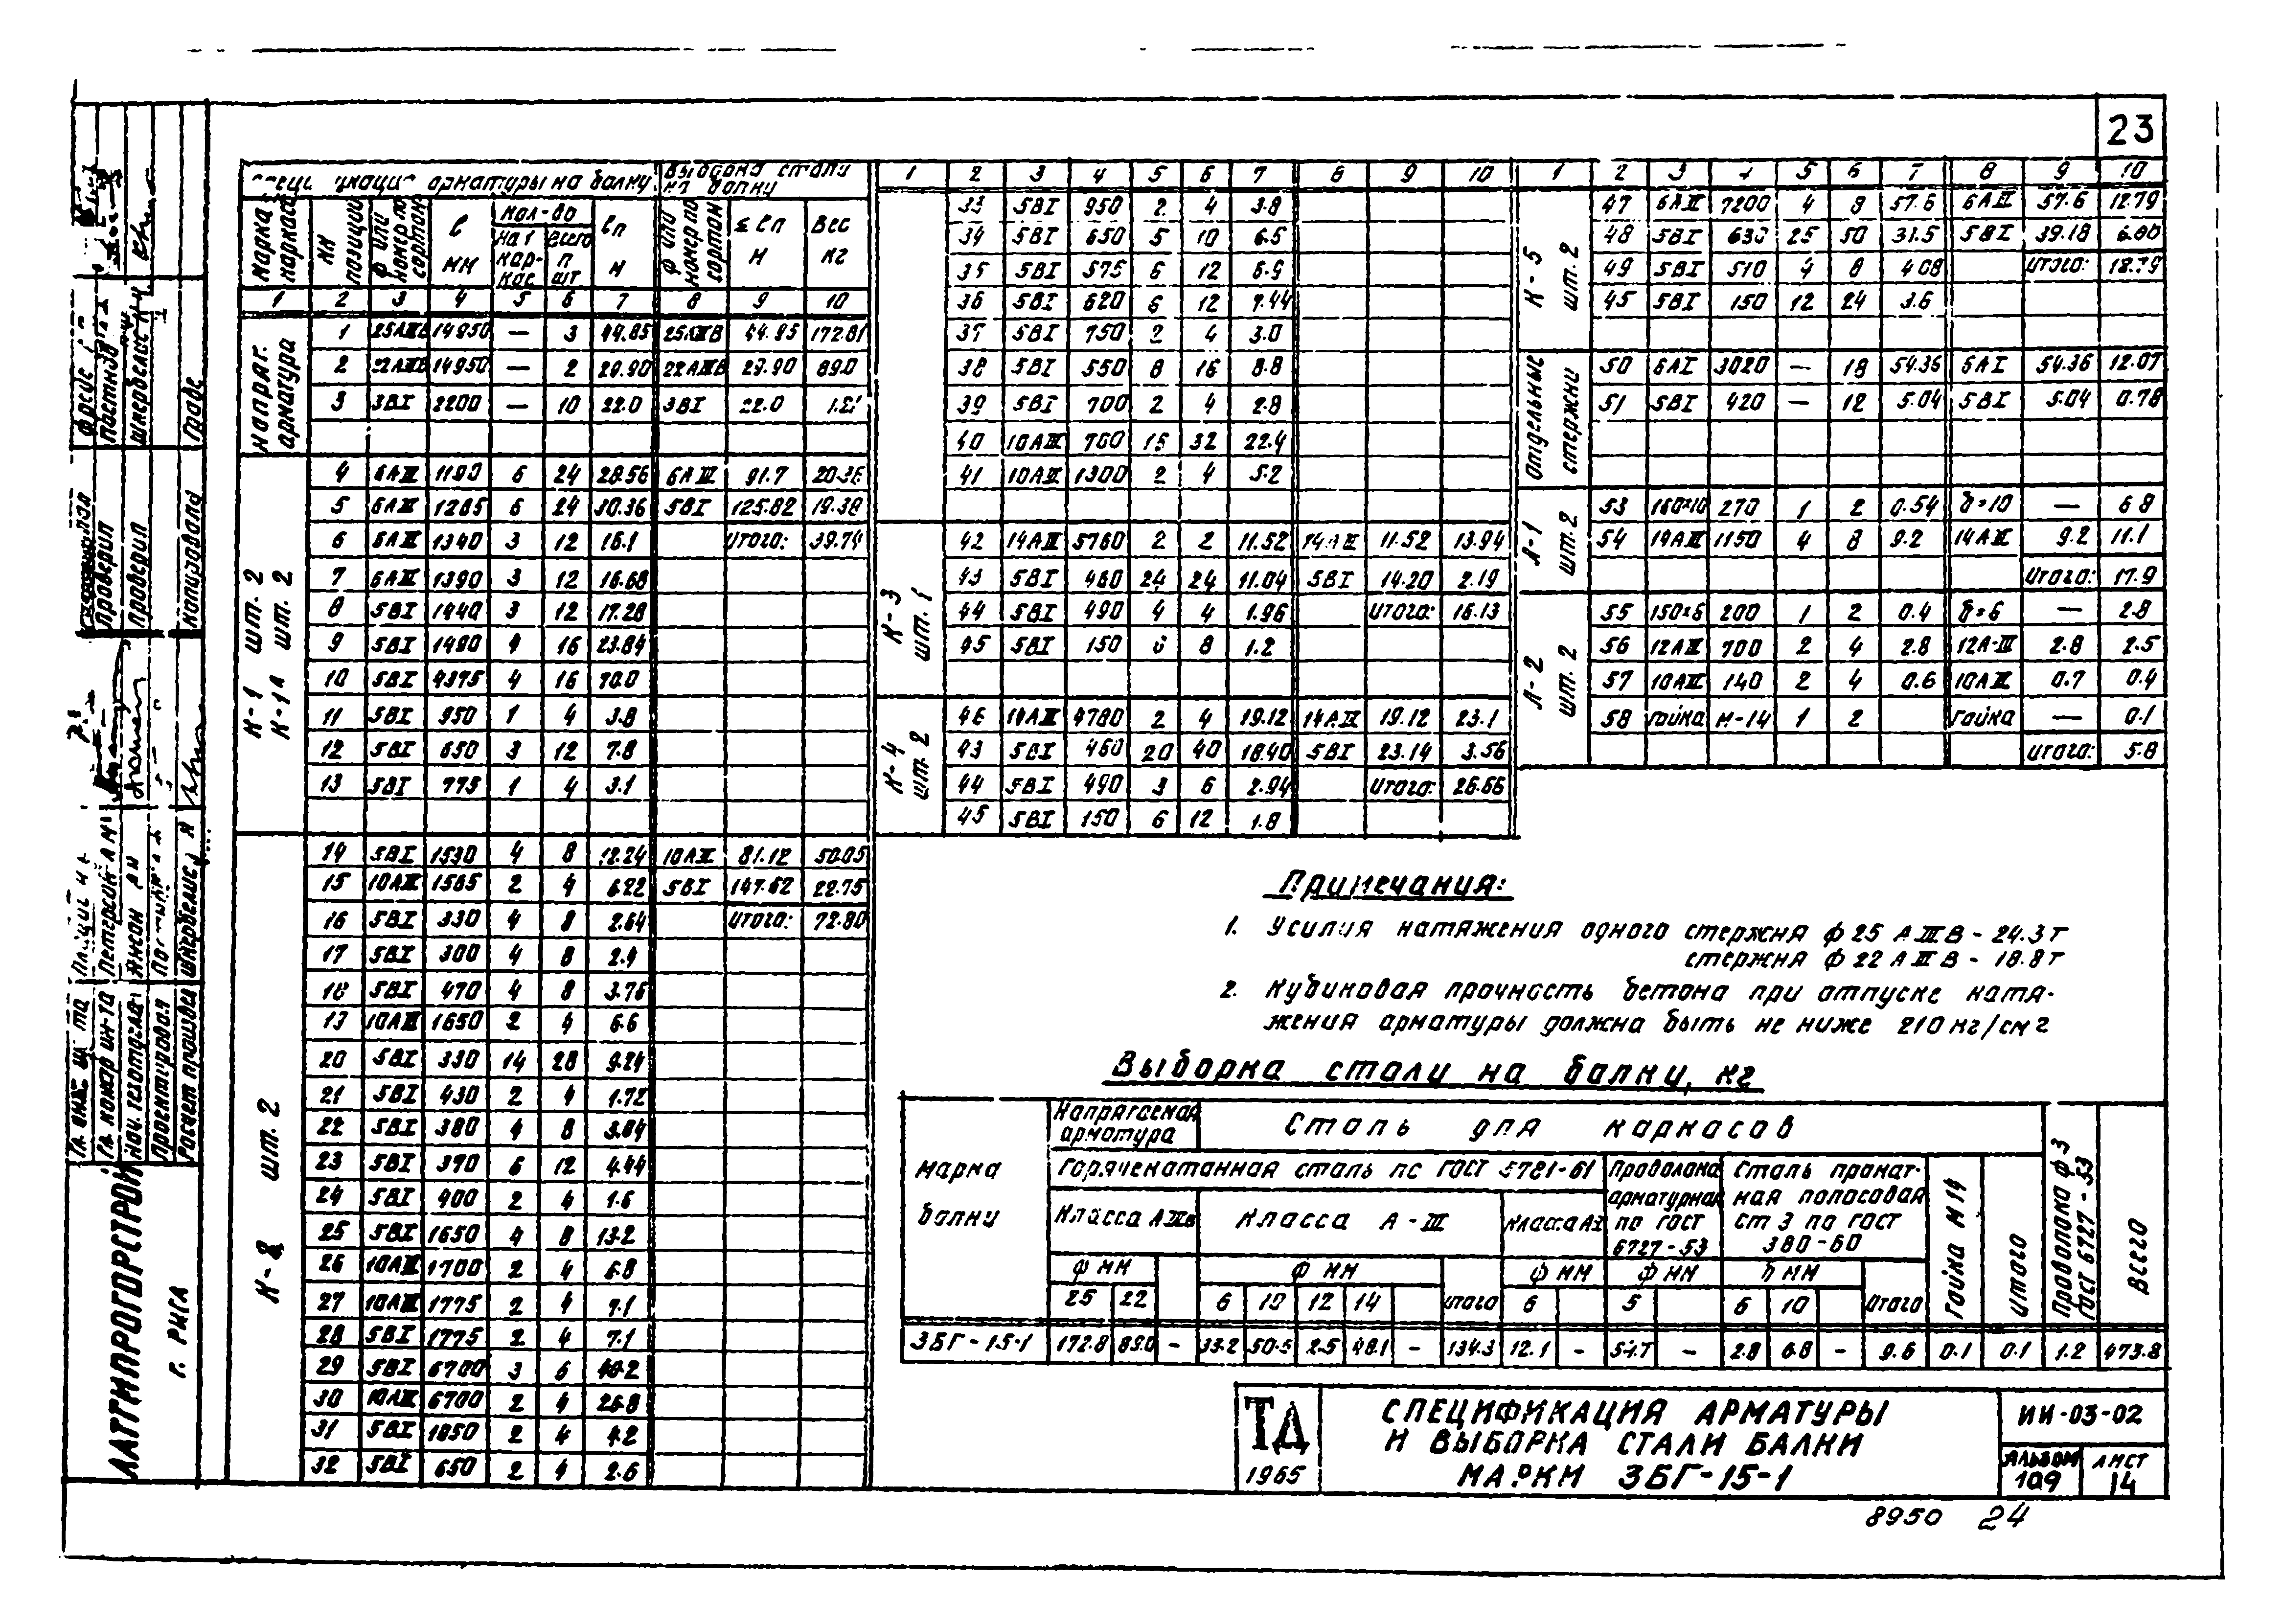 23
арматуры на балку
Выборка стали на балку
Марка каркаса | NN позиции | ф или номер по сортам. | ℓ мм | Кол-во на 1 каркас | всего п шт | ℓп м | ф или номер по сортам | Σ ℓп м | Вес кг
1 2 3 4 5 6 7 8 9 10
Напряг. арматура
1 25АIIIВ 14950 — 3 44.85 25АIIIВ 44.85 172.81
2 22АIIIВ 14950 — 2 29.90 22АIIIВ 29.90 89.0
3 3ВI 2200 — 10 22.0 3ВI 22.0
К-1 шт. 2
К-1А шт. 2
4 6АIII 1190 6 24 28.56 6АIII 91.7 20.36
5 6АIII 1265 6 24 30.36 5ВI 125.82 19.38
6 6АIII 1340 3 12 16.1 Итого: 39.74
7 6АIII 1390 3 12 16.68
8 5ВI 1440 3 12 17.28
9 5ВI 1490 4 16 23.84
10 5ВI 4375 4 16 70.0
11 5ВI 950 1 4 3.8
12 5ВI 650 3 12 7.8
13 5ВI 775 1 4 3.1
К-2 шт. 2
14 5ВI 1530 4 8 12.24 10АIII 81.12 50.05
15 10АIII 1565 2 4 6.22 5ВI 147.62 22.75
16 5ВI 330 4 8 2.64 Итого: 72.80
17 5ВI 300 4 8 2.4
18 5ВI 470 4 8 3.76
19 10АIII 1650 2 4 6.6
20 5ВI 330 14 28 9.24
21 5ВI 430 2 4 1.72
22 5ВI 380 4 8 3.04
23 5ВI 370 6 12 4.44
24 5ВI 400 2 4 1.6
25 5ВI 1650 4 8 13.2
26 10АIII 1700 2 4 6.8
27 10АIII 1775 2 4 7.1
28 5ВI 1775 2 4 7.1
29 5ВI 6700 3 6 40.2
30 10АIII 6700 2 4 26.8
31 5ВI 1050 2 4 4.2
32 5ВI 650 2 4 2.6
1 2 3 4 5 6 7 8 9 10
33 5ВI 950 2 4 3.8
34 5ВI 650 5 10 6.5
35 5ВI 575 6 12 6.9
36 5ВI 620 6 12 7.44
37 5ВI 750 2 4 3.0
38 5ВI 550 8 16 8.8
39 5ВI 700 2 4 2.8
40 10АIII 700 16 32 22.4
41 10АIII 1300 2 4 5.2
К-3 шт. 1
42 14АIII 5760 2 2 11.52 14АIII 11.52 13.94
43 5ВI 460 24 24 11.04 5ВI 14.20 2.19
44 5ВI 490 4 4 1.96 Итого: 16.13
45 5ВI 150 8 8 1.2
К-4 шт. 2
46 14АIII 4780 2 4 19.12 14АIII 19.12 23.1
43 5ВI 460 20 40 18.40 5ВI 23.14 3.56
44 5ВI 490 3 6 2.94 Итого: 26.66
45 5ВI 150 6 12 1.8
1 2 3 4 5 6 7 8 9 10
К-5 шт. 2
47 6АIII 7200 4 8 57.6 6АIII 57.6 12.79
48 5ВI 630 25 50 31.5 5ВI 39.18 6.00
49 5ВI 510 4 8 4.08 Итого: 18.79
45 5ВI 150 12 24 3.6
Отдельные стержни
50 6АI 3020 — 18 54.36 6АI 54.36 12.07
51 5ВI 420 — 12 5.04 5ВI 5.04 0.78
А-1 шт. 2
53 160×10 270 1 2 0.54 δ=10 — 6.8
54 14АIII 1150 4 8 9.2 14АIII 9.2 11.1
Итого: 17.9
А-2 шт. 2
55 150×6 200 1 2 0.4 δ=6 — 2.8
56 12АIII 700 2 4 2.8 12А-III 2.8 2.5
57 10АIII 140 2 4 0.6 10АIII 0.7 0.4
58 гайка М-14 1 2 гайка — 0.1
Итого: 5.8
Примечания:
1. Усилия натяжения одного стержня ф 25 АIIIВ - 24.3т
стержня ф 22 АIIIВ - 18.8т
2. Кубиковая прочность бетона при отпуске натя-
жения арматуры должна быть не ниже 210 кг/см2
Выборка стали на балку, кг
Марка балки | Напрягаемая арматура | Сталь для каркасов
Горячекатанная сталь по ГОСТ 5781-61 | Проволока арматурная по ГОСТ 6727-53 | Сталь прокатная полосовая ст 3 по ГОСТ 380-60 | Гайка М14 | Итого | Проволока ф 3 ГОСТ 6727-53 | Всего
Класса АIIIв | Класса А-III | Класса АI
ф мм | ф мм | ф мм | ф мм | δ мм
25 22 | 6 10 12 14 Итого | 6 | 5 | 6 10 Итого
3БГ-15-1 172.8 89.0 - 33.2 50.5 2.5 48.1 - 134.3 12.1 - 54.7 - 2.8 6.8 - 9.6 0.1 0.1 1.2 473.8
ТД
1965
СПЕЦИФИКАЦИЯ АРМАТУРЫ
И ВЫБОРКА СТАЛИ БАЛКИ
МАРКИ 3БГ-15-1
ИИ-03-02
АЛЬБОМ 109
ЛИСТ 14
8950 24
ЛАТГИПРОГОРСТРОЙ
г. РИГА
Проектировал
Расчет произвел
Проверил
Проверил
Копировала
Граве